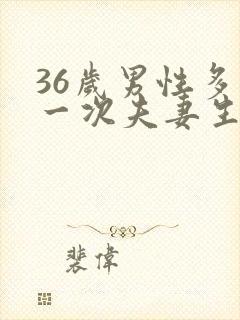 36歲男性多
一次夫妻生
裴偉